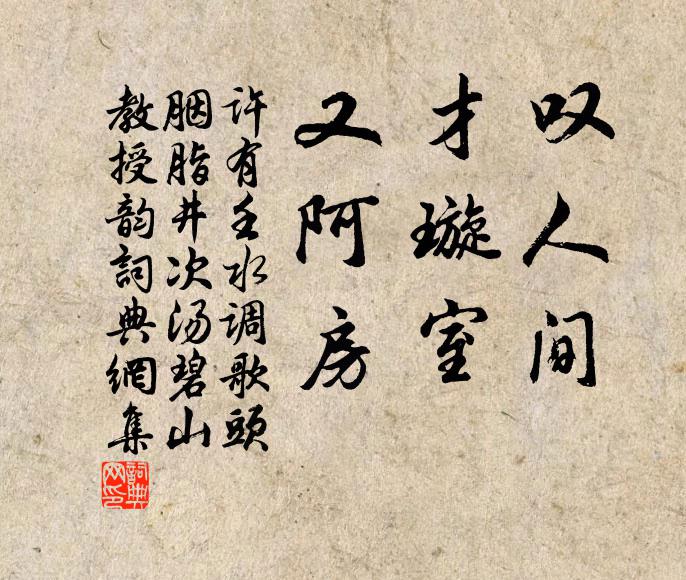 叹人间
才璇室
又阿房
许有壬水调歌头
胭脂井次汤碧山
教授韵詞典網集
詞典网印